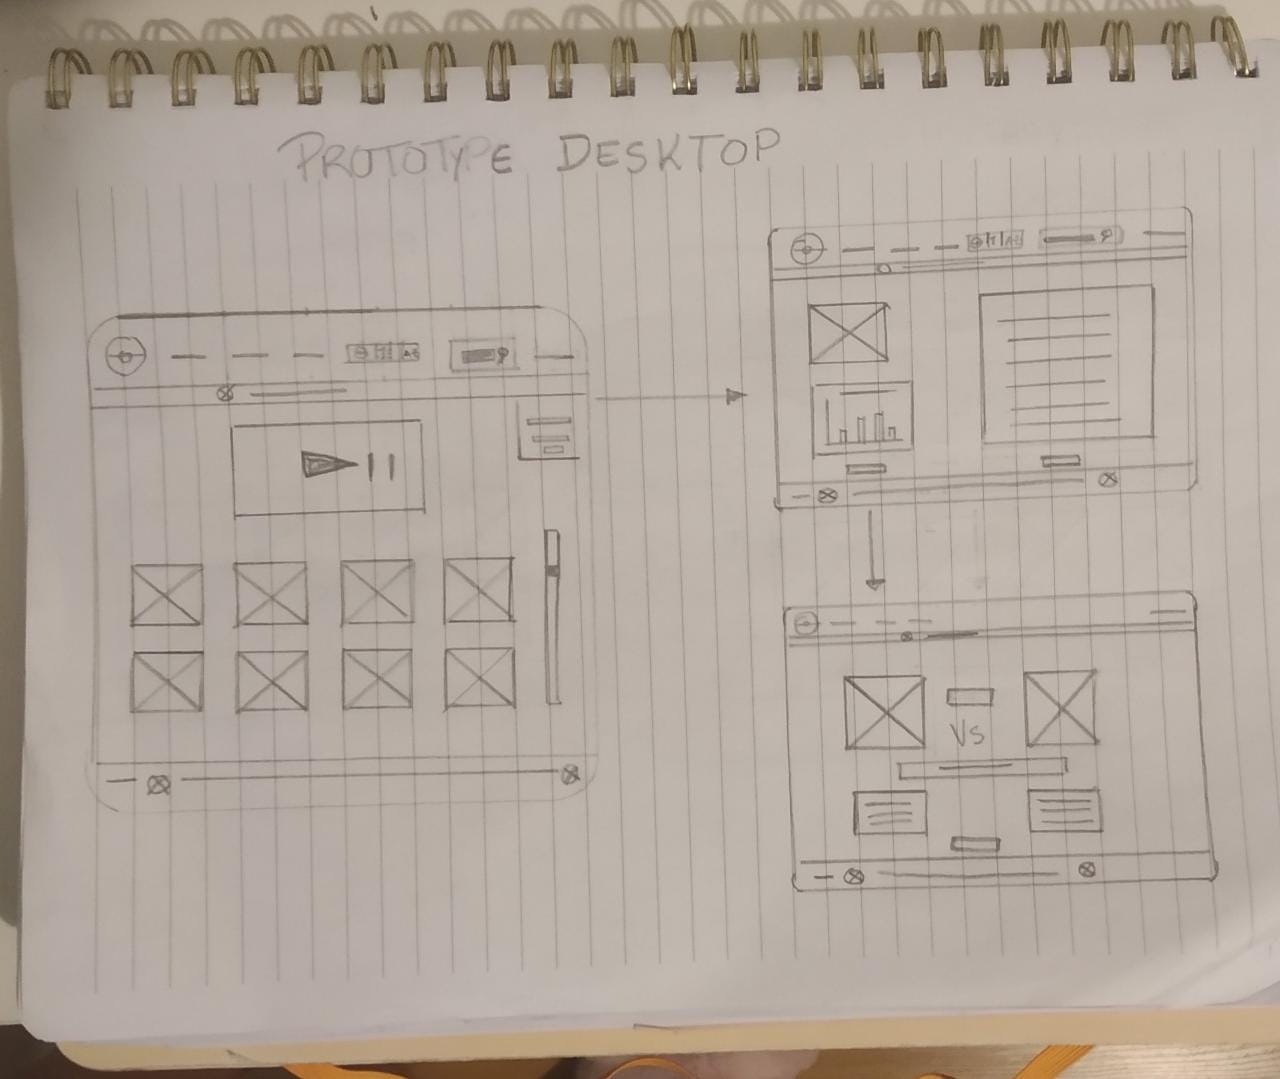 PROTOTYPE DESKTOP
VS